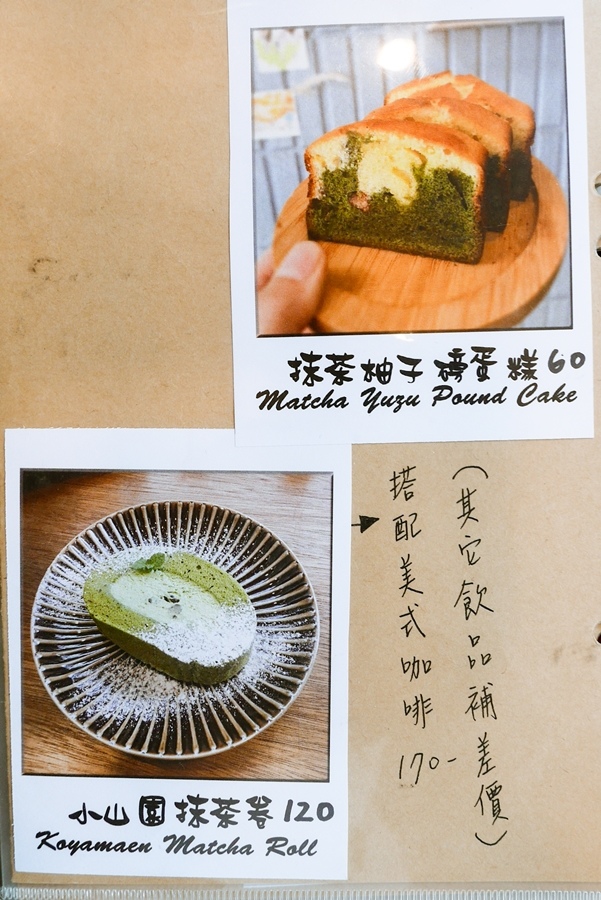 抹茶柚子磅蛋糕60
Matcha Yuzu Pound Cake
搭配美式咖啡 170-
(其它飲品補差價)
小山園抹茶卷120
Koyamaen Matcha Roll